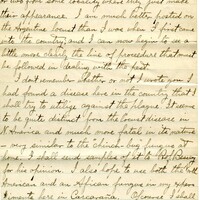 or was from some curiosity when they just made
their appearance. I am much better posted on
the Argentine locust than I was when I first came
into the country and I can now begin to see a
little more clearly the line of procedure that must
be followed in dealing with the pest.
I don't remember whether or not I wrote you I
had found a disease here in the country that I
shall try to utilize against the plague. It seems
to be quite distinct from the locust disease in
N. America and much more fatal in its nature
very similar to the chinch-bug fungus at
home. I shall send samples of it to Prof. Bessey
for his opinion. I also hope to use both the
American and an African fungus in my exper-
iments here in Carcarana. Of course I shall